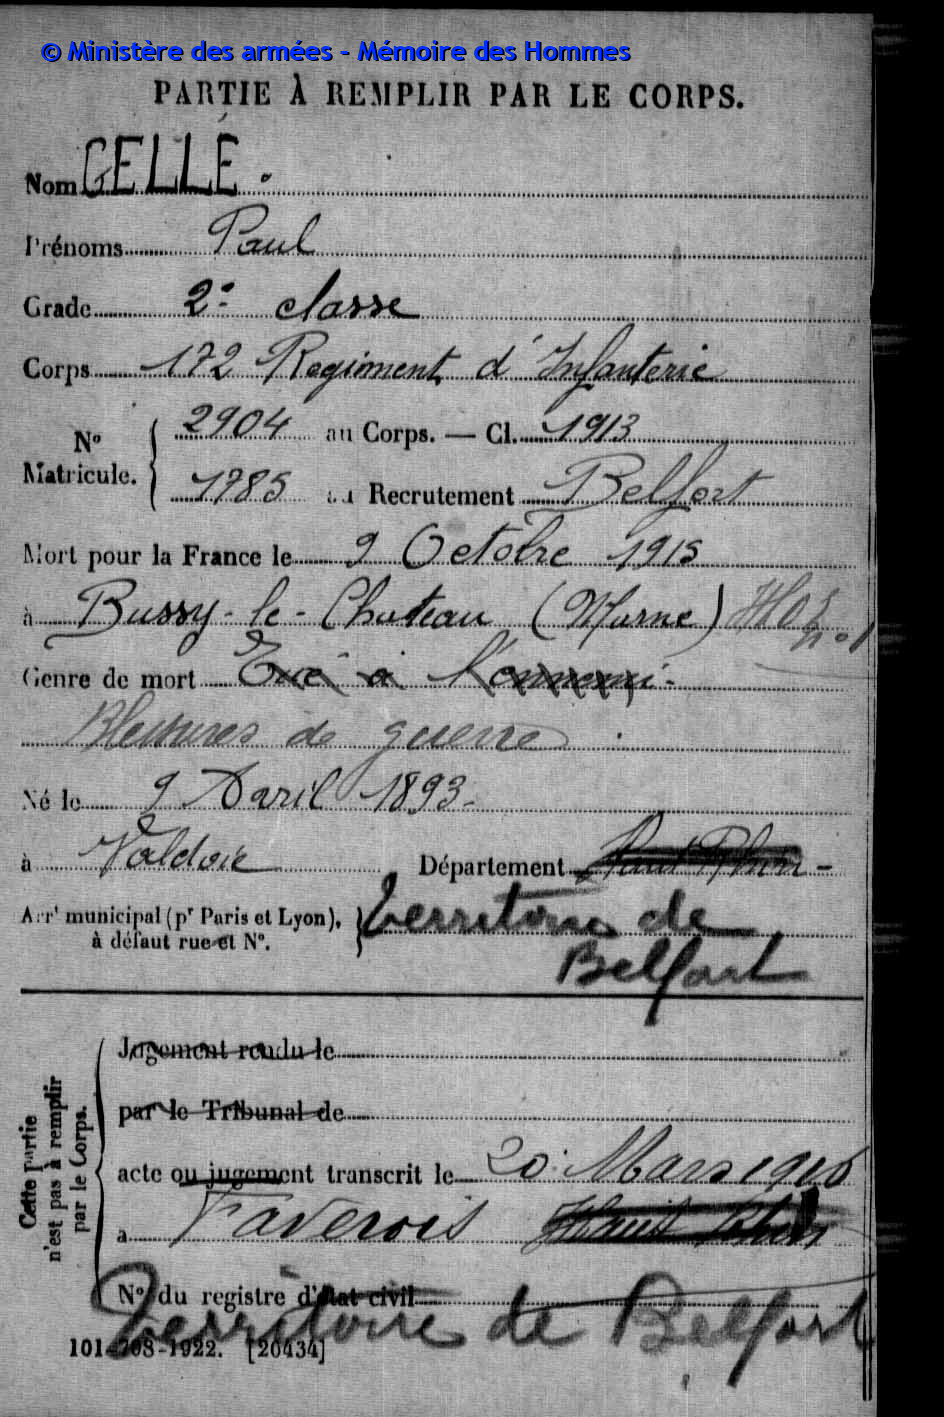 © Ministère des armées - Mémoire des Hommes
PARTIE À REMPLIR PAR LE CORPS.
Nom GELLE.
Prénoms Paul
Grade 2e classe
Corps 172 Regiment d'Infanterie
N° Matricule. { 2904 au Corps. — Cl. 1913
1785 au Recrutement Belfort
Mort pour la France le 9 Octobre 1915
à Bussy-le-Chateau (Marne) HOE n°1
Genre de mort Tué à l'ennemi -
Blessures de guerre.
Né le 9 Avril 1893-
à Valdoie Département Haut Rhin -
Arrt municipal (pr Paris et Lyon), à défaut rue et N°. } Territoire de
Belfort
Cette partie n'est pas à remplir par le Corps.
Jugement rendu le
par le Tribunal de
acte ou jugement transcrit le 20 Mars 1916
à Faverois Haut Rhin
N° du registre d'état civil
Territoire de Belfort
101-708-1922. [20434]